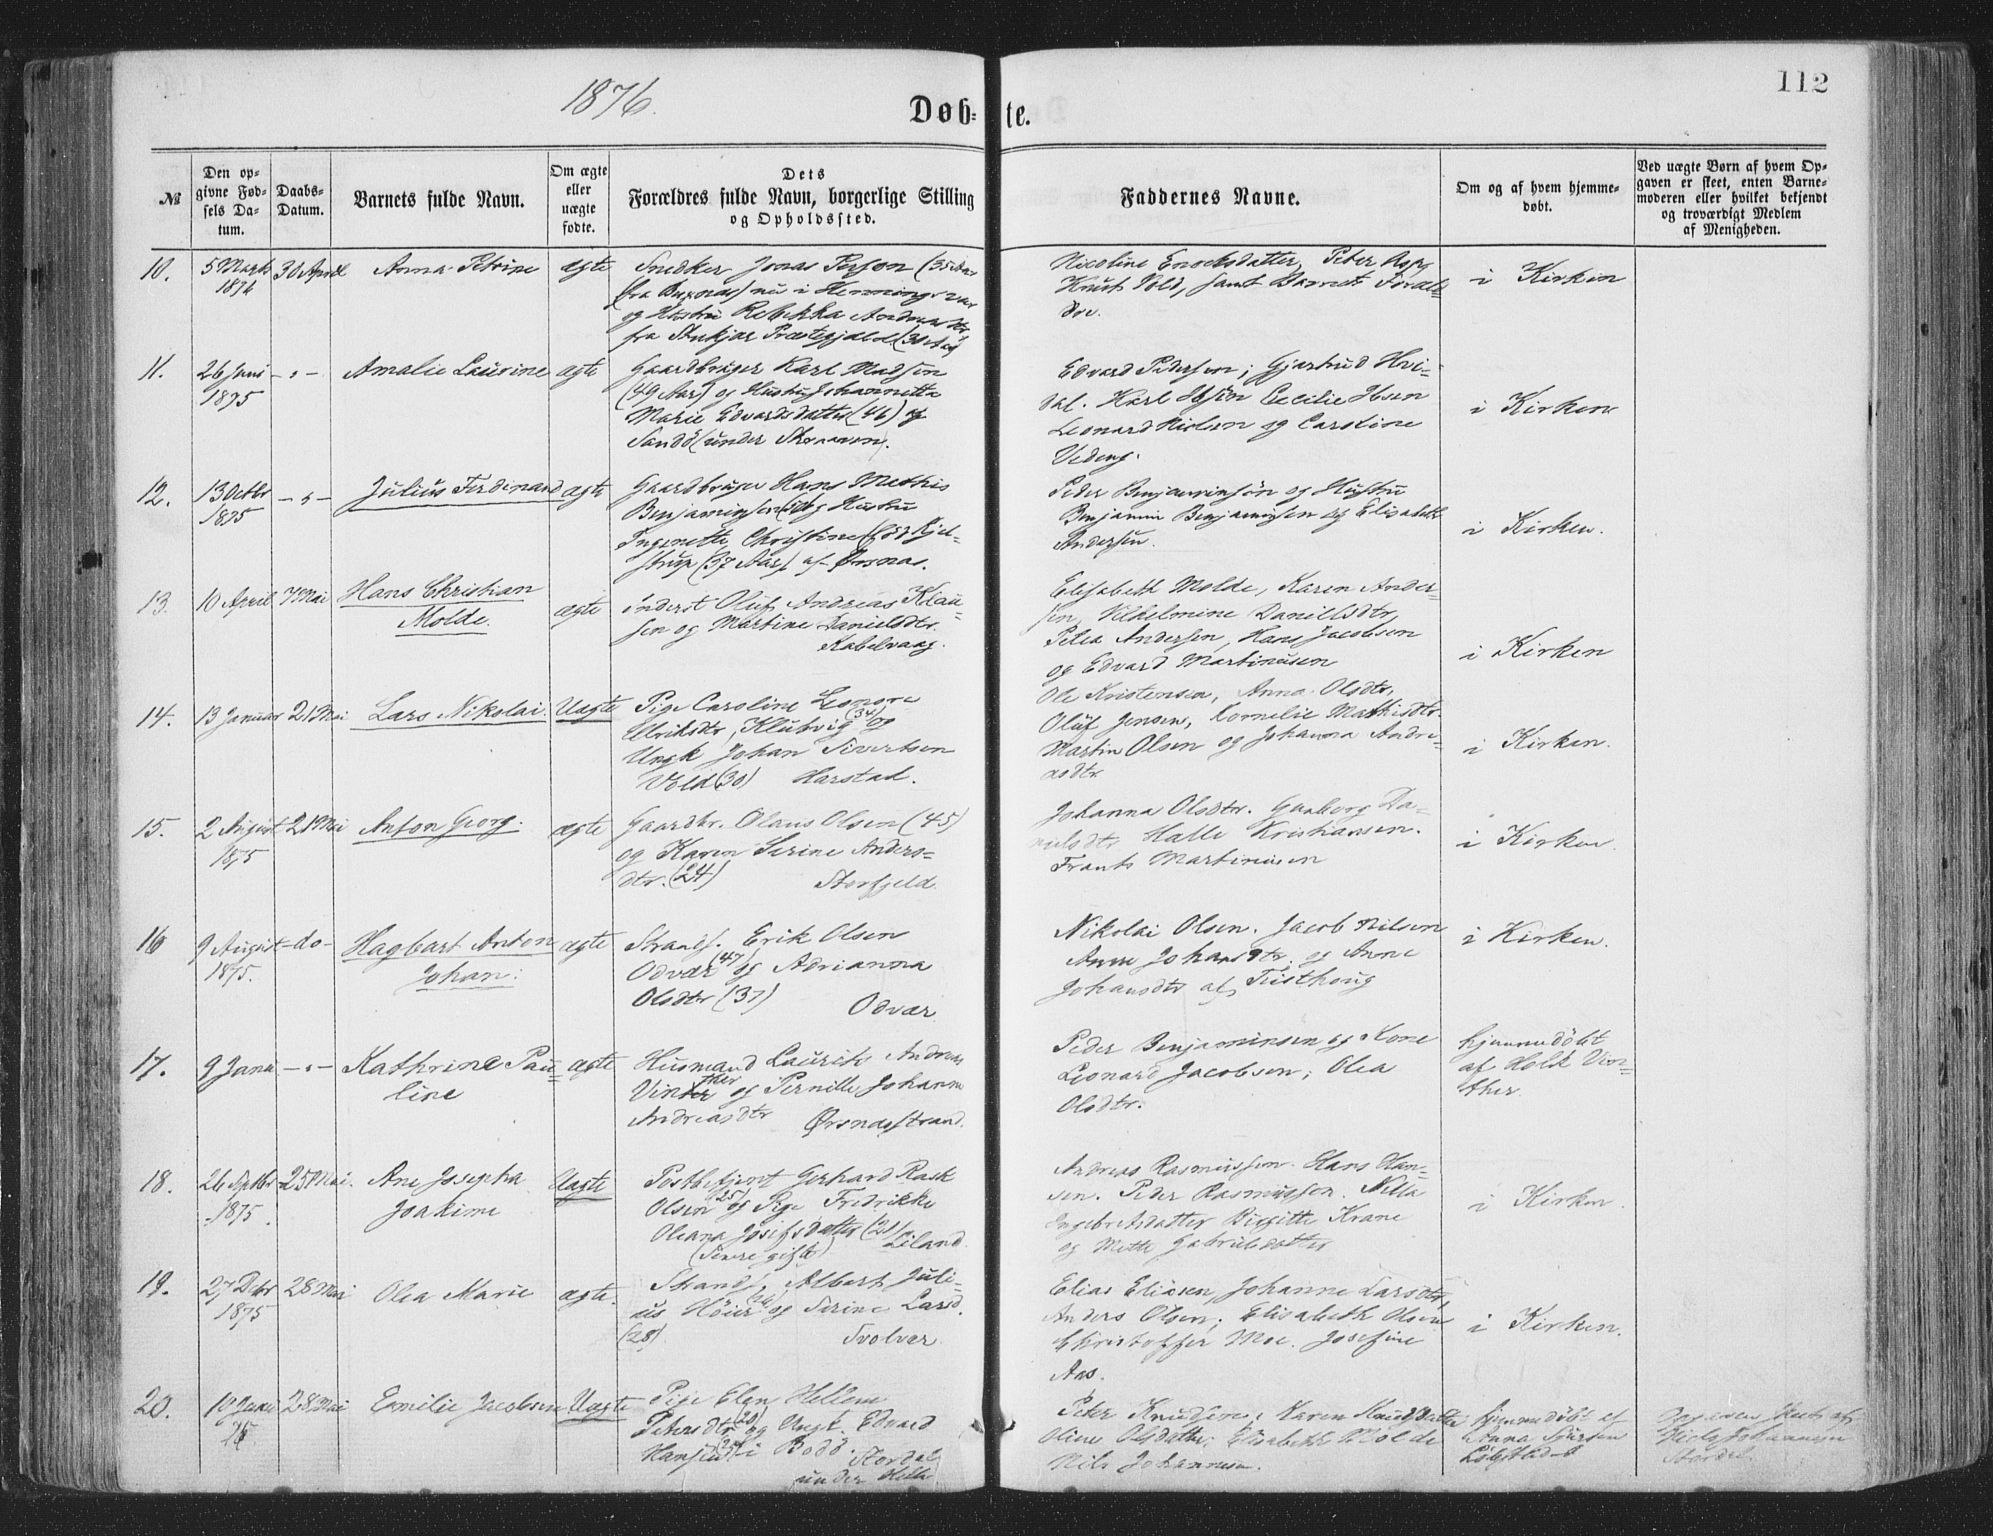 1876.
112
Døb-te.
№
Den op-
givne Fød-
sels Da-
tum.
Daabs-
Datum.
Barnets fulde Navn.
Om ægte
eller
uægte
fødte.
Dets
Forældres fulde Navn, borgerlige Stilling
og Opholdssted.
Faddernes Navne.
Om og af hvem hjemme-
døbt.
Ved uægte Børn af hvem Op-
gaven er skeet, enten Barne-
moderen eller hvilket bekjendt
og troværdigt Medlem
af Menigheden.
10.
5 Marts
1876
30 April
Anna Petrine
ægte
Snedker Jonas Person (35 Aar
fra Buxnæs) nu i Hennings vær
og Hustru Rebekka Andreas dtr
fra Stenkjær Præstegjæld (30 Aar)
Nicoline Enoksdatter, Peter Asp,
Knut Vold, samt Barnets Foræl-
dre.
i Kirken
11.
26 Juni
1875
- " -
Amalie Laurine
ægte
Gaardbruger Karl Madsen
(49 Aar) og Hustru Johannetta
Marie Edvardsdatter (46) af
Sandø (under Skraaven).
Edvard Pedersen; Gjertrud Hvi-
dal. Karl Ibsen Cecilie Ibsen
Leonard Nielsen og Caroline
Vedeng.
i Kirken
12.
13 Octbr
1875
- " -
Julius Ferdinand
ægte
Gaardbruger Hans Mathis
Benjaminsen og Hustru
Ingenette Christine (fød Kjel-
strup (37 Aar) af Ørsnæs.
Peder Benjaminsøn og Hustru
Benjamin Benjaminsen og Elisabeth
Andersen.
i Kirken.
13.
10 April
7 Mai
Hans Christian
Molde.
ægte
inderst Oluf Andreas Klau-
sen og Martine Danielsdtr.
Kabelvaag.
Elisabeth Molde, Karen Ander-
sen, Vilhelmine Danielsdtr,
Petra Andersen, Hans Jacobsen
og Edvard Martinusen
i Kirken
14.
13 Januar
21 Mai
Lars Nikolai.
Uægte
Pige Caroline Lenore
Ulriksdtr, Klubvig (34) og
Ungk Johan Sivertsen
Vold (30) Harstad.
Ole Kristensen, Anna Olsdtr,
Oluf Jensen, Kornelie Mathisdtr.
Martin Olsen og Johanna Andre-
asdtr
i Kirken.
15.
2 August
1875
21 Mai
Anton Georg.
ægte
Gaardbr. Olaus Olsen (45)
og Karen Serine Anders-
dtr. (24) Storfjeld.
Johanna Olsdtr. Gunborg Da-
nielsdtr Halle Kristiansen.
Frants Martinusen
i Kirken.
16
9 August
1875.
- do -
Hagbart Anton
Johan.
ægte
Strands. Erik Olsen
Odvær (47) og Adrianna
Olsdtr (37) Odvær
Nikolai Olsen. Jacob Nilsen
Anne Johansdtr. og Anne
Johansdtr af Tisthoug
i Kirken.
17.
9 Janu
- " -
Kathrine Pau-
line
ægte
Husmand Laurits Andreas
Vinther og Pernille Johanna
Andreasdtr Ørsnesstrand.
Peder Benjaminsen og Kone
Leonard Jacobsen; Olea
Olsdtr.
hjemmedøbt
af Holk Vin-
ther.
18.
26 Septbr
1875.
25 Mai.
Ane Josepha
Joakime
Uægte
Postbetjent Gerhard Rask
Olsen (25) og Pige Fredrikke
Oleana Josefsdatter (21)
(Senere gifte) Liland.
Andreas Rasmussen. Hans Han-
sen. Peder Rasmussen. Nella
Ingebretsdatter Birgitte Krane
og Mette Gabrielsdatter
i Kirken.
19.
27 Dcbr
1875
28 Mai
Olea Marie
ægte.
Strands. Albert Juli-
us Höier og Serine Larsd.
(28) Svolvær.
Elias Eliasen, Johanne Larsdtr,
Anders Olsen; Elisabeth Olsen
Christoffer Moe. Josefine
Aas.
i Kirken.
20.
19 Janu
28 Mai
Emilie Jacobsen
Uægte
Pige Elen Hellene
Petersdtr (20) og Ungk. Edvard
Hansen i Bodø. Stordal
under Helle
Peter Knudsen, Karen Knudsdatter
Oline Olsdatter, Elisabeth Molde
Nils Johannesen.
hjemmedøbt af
Anna
Opgaven skeet af
Niels Johannesen
Stordal.